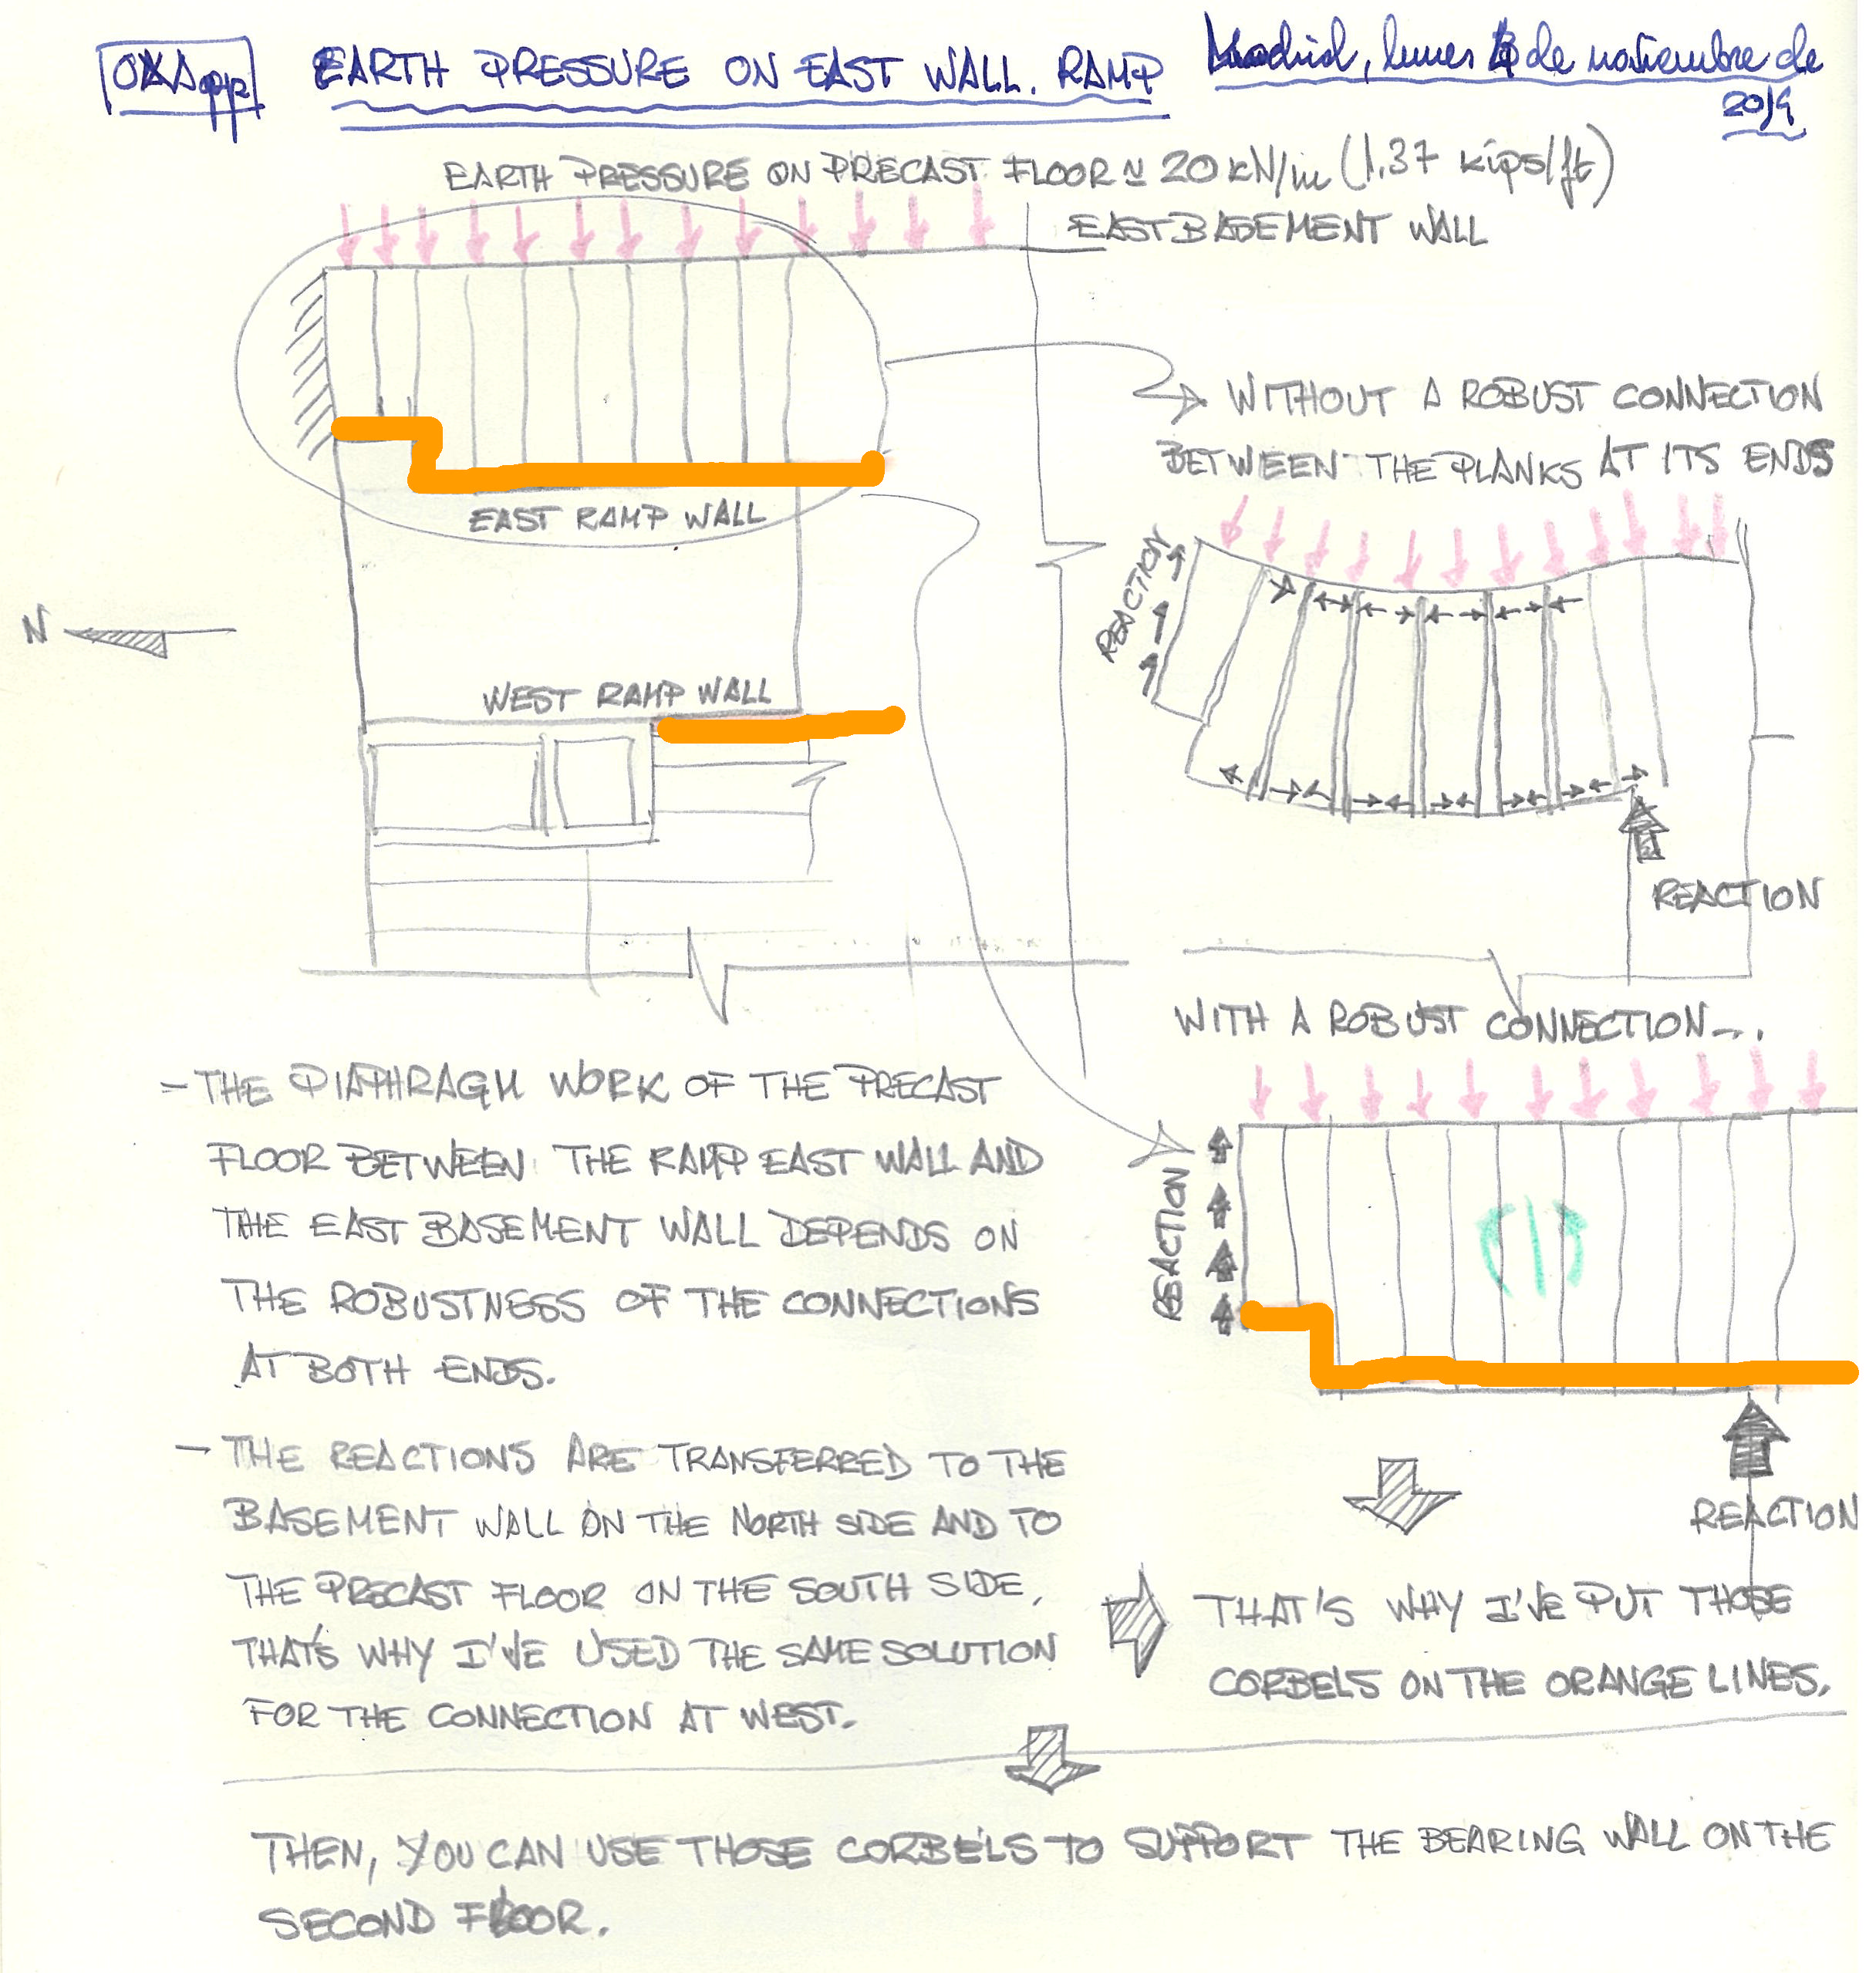 EARTH PRESSURE ON EAST WALL. RAMP
Madrid, lunes 4 de noviembre de
2019
EARTH PRESSURE ON PRECAST FLOOR ≃ 20 kN/m (1.37 kips/ft)
EAST BASEMENT WALL
WITHOUT A ROBUST CONNECTION
BETWEEN THE PLANKS AT ITS ENDS
EAST RAMP WALL
REACTION
N
WEST RAMP WALL
REACTION
WITH A ROBUST CONNECTION...
REACTION
REACTION
- THE DIAPHRAGM WORK OF THE PRECAST
FLOOR BETWEEN THE RAMP EAST WALL AND
THE EAST BASEMENT WALL DEPENDS ON
THE ROBUSTNESS OF THE CONNECTIONS
AT BOTH ENDS.
- THE REACTIONS ARE TRANSFERRED TO THE
BASEMENT WALL ON THE NORTH SIDE AND TO
THE PRECAST FLOOR ON THE SOUTH SIDE,
THAT'S WHY I'VE USED THE SAME SOLUTION
FOR THE CONNECTION AT WEST.
THAT'S WHY I'VE PUT THOSE
CORBELS ON THE ORANGE LINES.
THEN, YOU CAN USE THOSE CORBELS TO SUPPORT THE BEARING WALL ON THE
SECOND FLOOR.